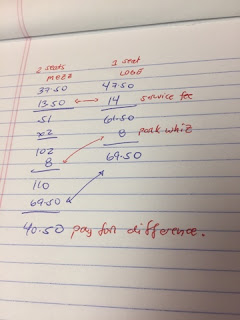 2 seats 1 seat
MEZZ LOGE
37.50 47.50
13.50 14 service fee
51 61.50
x2 8 park whiz
102 69.50
8
110
69.50
40.50 pay for difference.